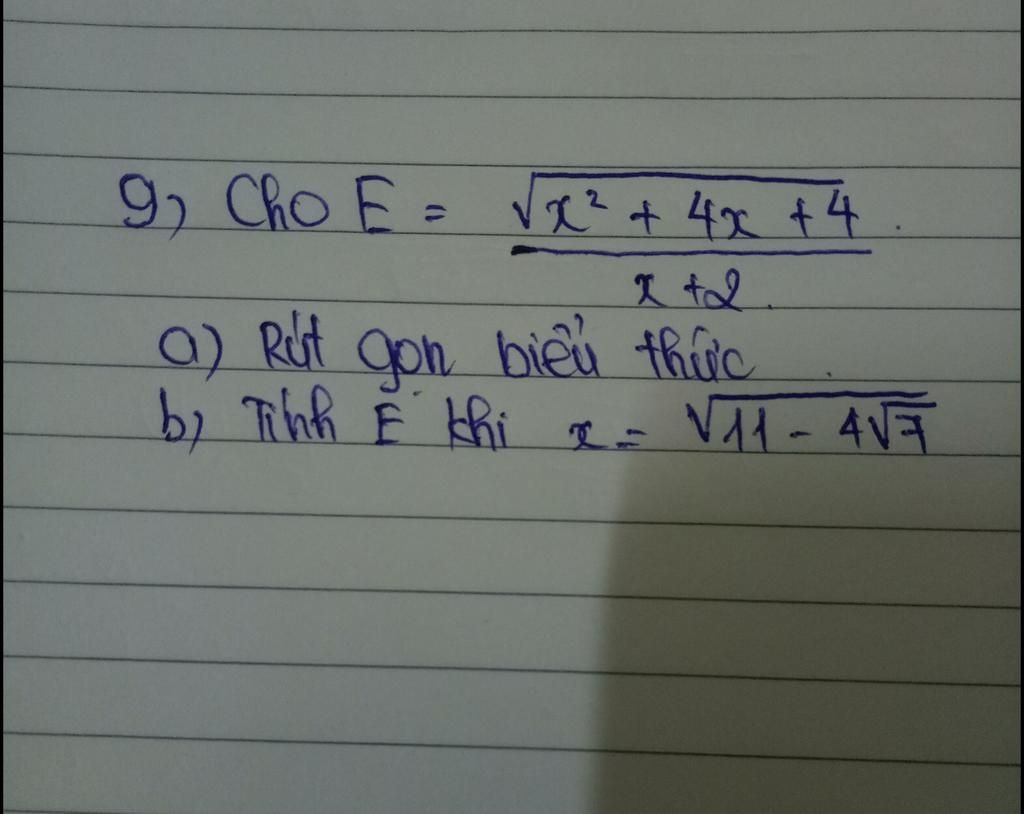 9, Cho E = \frac{\sqrt{x² + 4x + 4}}{x + 2}.
a) Rút gọn biểu thức.
b, Tính E khi x = \sqrt{11 - 4\sqrt{7}}